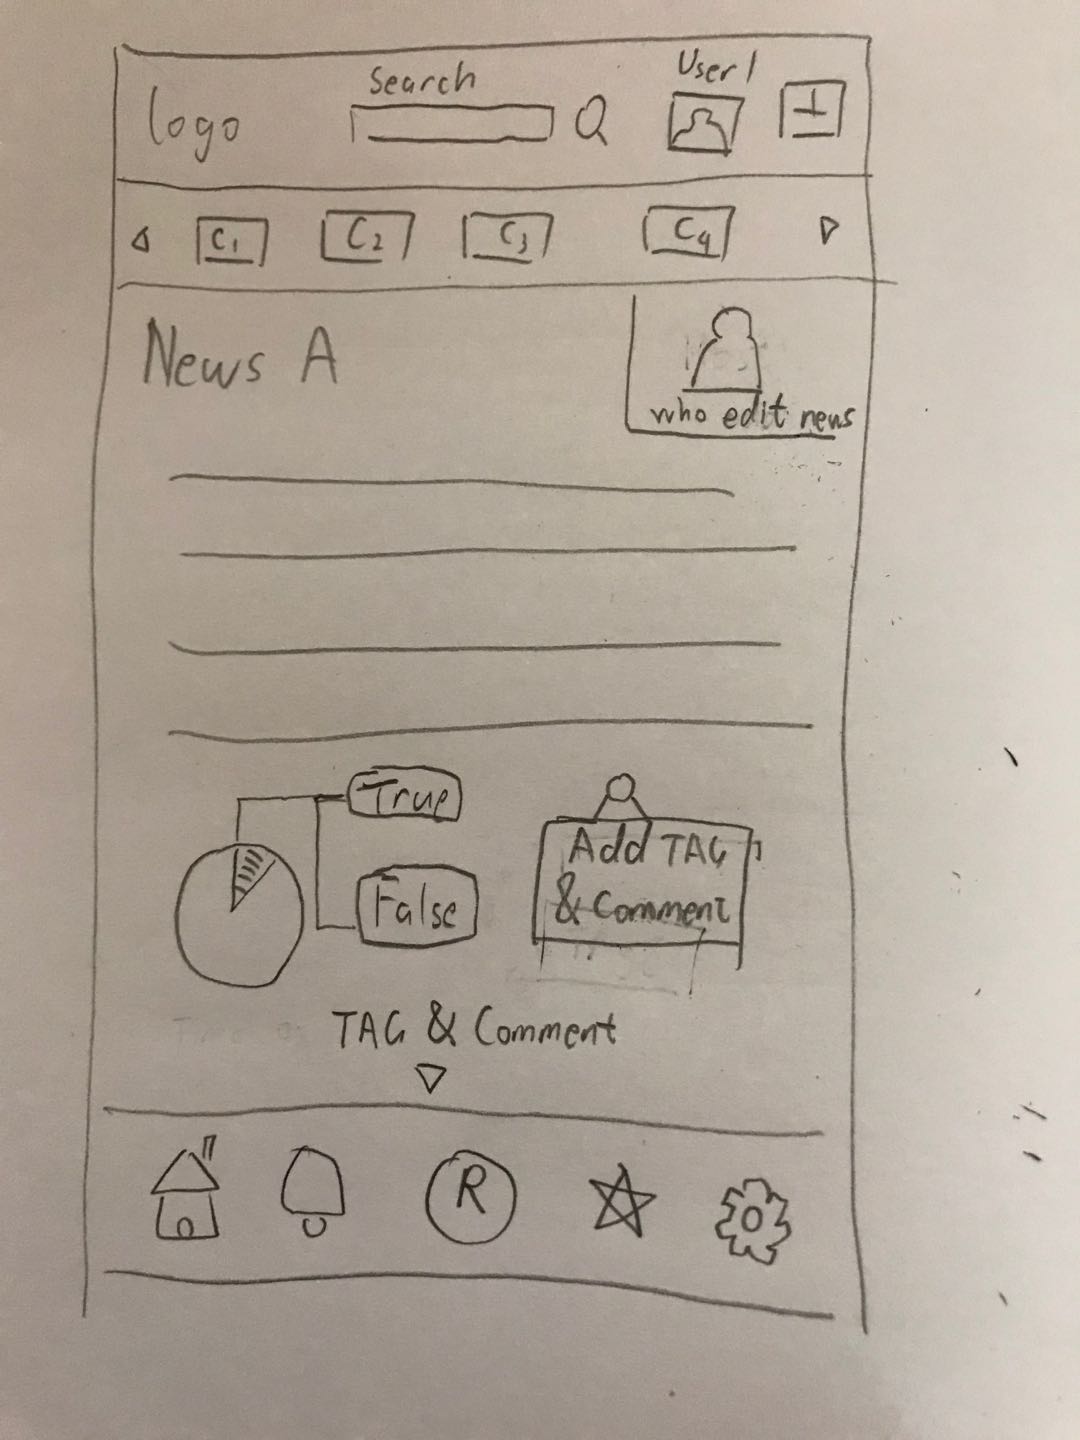 logo
Search
User 1
C1
C2
C3
C4
News A
who edit news
True
False
Add TAG
& Comment
TAG & Comment
R